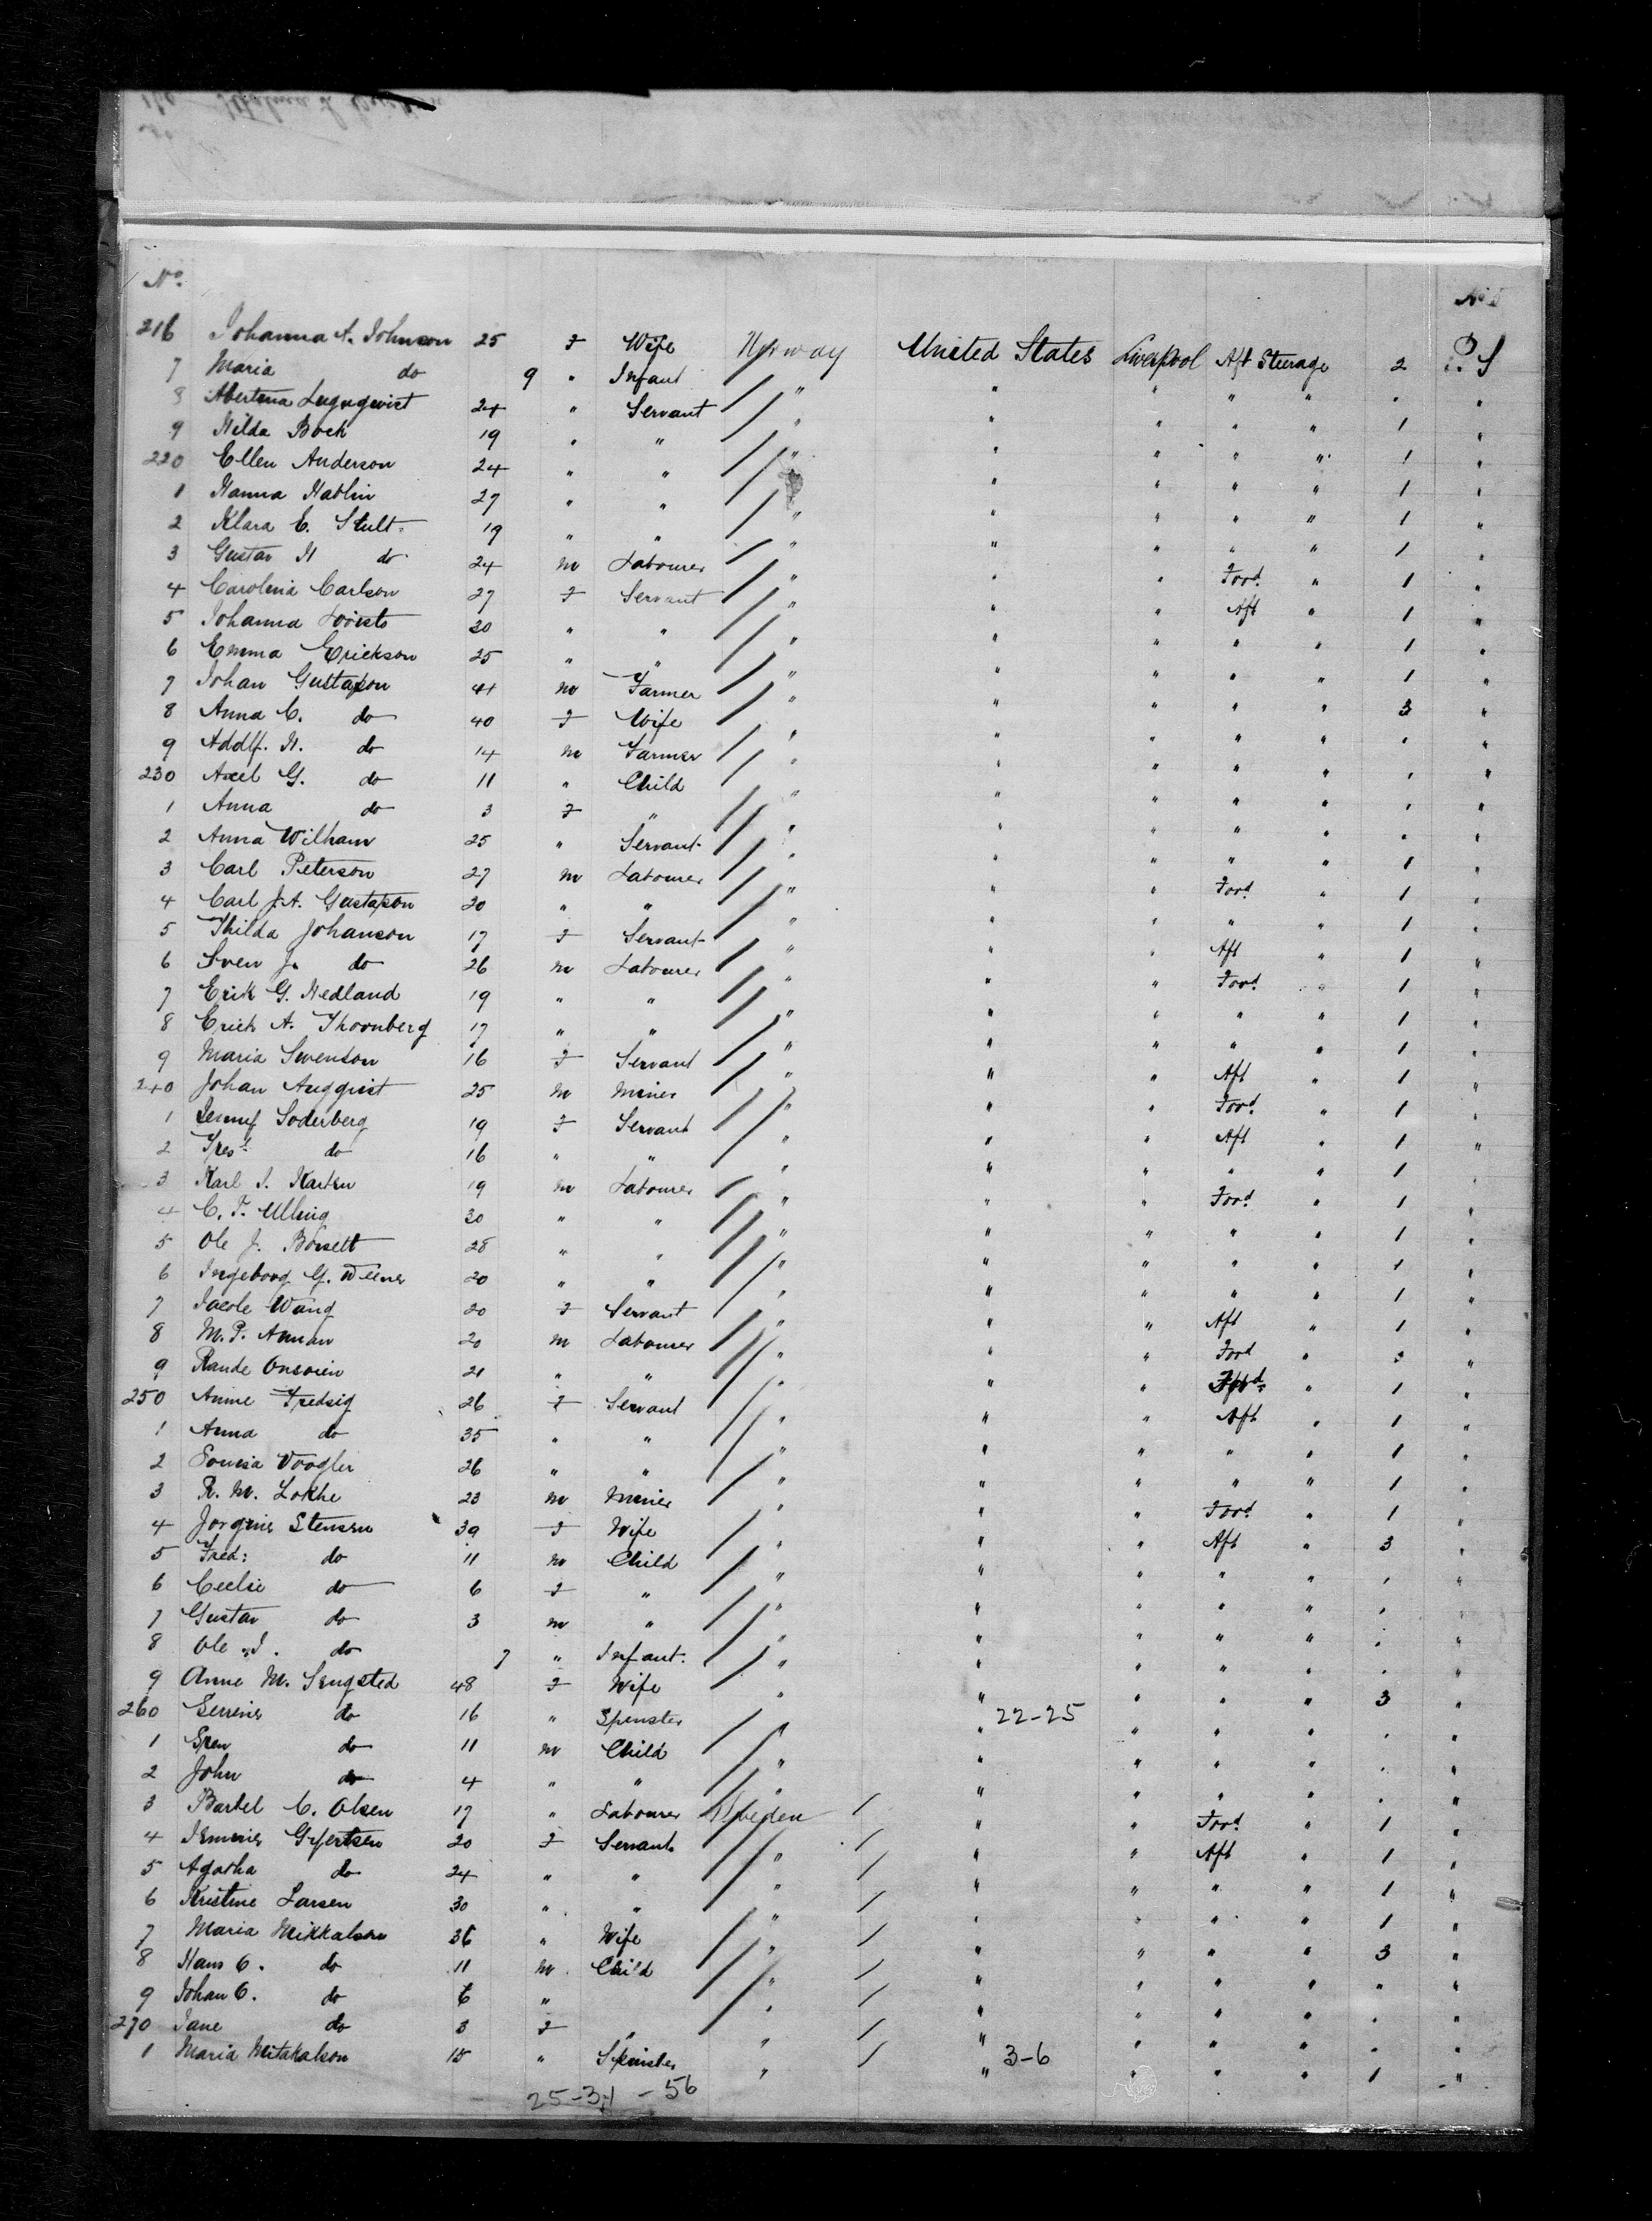 No.
216 Johanna A. Johnson 25 F Wife Norway United States Liverpool Aft Steerage 2 P. S
7 Maria do 9 " Infant " " " " " " "
8 Abertina 24 " Servant " " " " " 1 "
9 Hilda Bock 19 " " " " " " " 1 "
220 Ellen Anderson 24 " " " " " " " 1 "
1 Hanna Hablin 27 " " " " " " " 1 "
2 Klara E. Stult 19 " " " " " " " 1 "
3 Gustav H do 24 m Labourer " " " Ford. " 1 "
4 Carolina Carlson 27 F Servant " " " Aft " 1 "
5 Johanna 20 " " " " " " " 1 "
6 Emma Erickson 25 " " " " " " " 1 "
7 Johan Gustafson 41 m Farmer " " " " " 3 "
8 Anna C. do 40 F Wife " " " " " " "
9 Addlf. H. do 14 m Farmer " " " " " " "
230 Axel G. do 11 " Child " " " " " " "
1 Anna do 3 F " " " " " " " "
2 Anna Wilham 25 " Servant " " " " " 1 "
3 Carl Peterson 27 m Labourer " " " Ford. " 1 "
4 Carl J. A. Gustafson 20 " " " " " " " 1 "
5 Thilda Johanson 17 F Servant " " " Aft " 1 "
6 Sven J. do 26 m Labourer " " " Ford. " 1 "
7 Erik G. Hedland 19 " " " " " " " 1 "
8 Erick A. Thornberg 17 " " " " " " " 1 "
9 Maria Swenson 16 F Servant " " " Aft " 1 "
240 Johan Augquist 25 m Miner " " " Ford. " 1 "
1 Soderberg 19 F Servant " " " Aft " 1 "
2 do 16 " " " " " " " 1 "
3 Karl J. 19 m Labourer " " " Ford. " 1 "
4 C. F. Ulling 30 " " " " " " " 1 "
5 Ole J. Borsett 28 " " " " " " " 1 "
6 Ingeborg G. 20 " " " " " " " 1 "
7 Jacole Wang 20 F Servant " " " Aft " 1 "
8 M. P. Aman 20 m Labourer " " " Ford " "
9 Rande Onsoien 21 " " " " " Ford. " 1 "
250 Anne Fredsig 26 F Servant " " " Aft " 1 "
1 Anna do 35 " " " " " " " 1 "
2 Louisa Voogler 26 " " " " " " " 1 "
3 R. M. Lokhe 23 m Miner " " " Ford. " 1 "
4 Jorgine Stensen 39 F Wife " " " Aft " 3 "
5 Fred: do 11 m Child " " " " " " "
6 Ceelie do 6 F " " " " " " " "
7 Gustav do 3 m " " " " " " " "
8 Ole J. do 7 " Infant. " " " " " " "
9 Anne M. Sengsted 48 F Wife " " " " " 3 "
260 Serrine do 16 " Spenster " " 22-25 " " " " "
1 Sven do 11 m Child " " " " " " "
2 John do 4 " " " " " " " " "
3 Bartel C. Olsen 17 " Labourer Sweden / " " Ford. " 1 "
4 Gyertsen 20 F Servant " / " " Aft " 1 "
5 Agatha do 24 " " " / " " " " 1 "
6 Kristine Larsen 30 " " " / " " " " 1 "
7 Maria Mikkalson 36 " Wife " / " " " " 3 "
8 Hans C. do 11 m Child " / " " " " " "
9 Johan C. do 6 " " / " " " " " "
270 Jane do 3 F " " / " " " " " "
1 Maria Mitakalson 15 " Spinster " / " 3-6 " " " 1 "
25-31 - 56